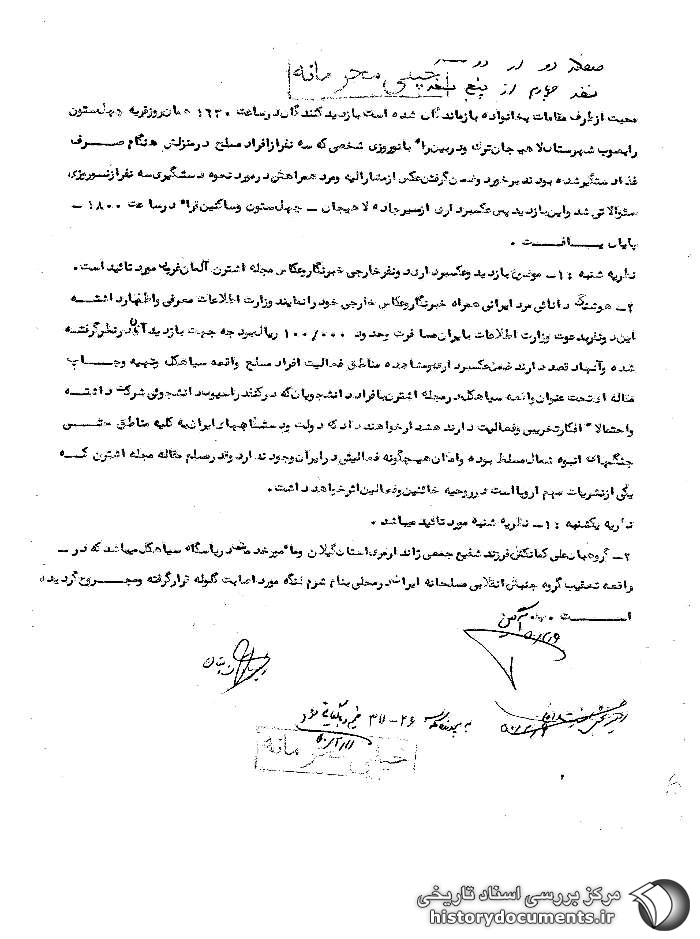 صفحه دو از دو
خیلی محرمانه
نسخه چهارم از پنج نسخه
محبت از طرف مقامات بخانواده بازماندگان شده است بازدیدکنندگان در ساعت ۱۶۳۰ همان روز قریه چهل‌ستون
را بصوب شهرستان لاهیجان ترک و در بین راه با نوروزی شخصی که سه نفر از افراد مسلح در منزلش هنگام صرف
غذا دستگیر شده بودند برخورد و ضمن گرفتن عکس از مشارالیه و مرد همراهش در مورد نحوه دستگیری سه نفر از نوروزی
سئوالاتی شد و این بازدید پس عکسبرداری از مسیر جاده لاهیجان - چهل ستون و ساکنین در ساعت ۱۸۰۰ -
پایان یافت .
نظریه شنبه : ۱- موضوع بازدید و عکسبرداری دو نفر خارجی خبرنگار و عکاس مجله اشترن آلمان غربی مورد تائید است.
۲- هوشنگ دانائی مرد ایرانی همراه خبرنگار و عکاس خارجی خود را نماینده وزارت اطلاعات معرفی و اظهار داشته
این دو نفر بدعوت وزارت اطلاعات بایران مسافرت و حدود ۱۰۰/۰۰۰ ریال بودجه جهت بازدید آنان در نظر گرفته
شده و آنها قصد دارند ضمن عکسبرداری و مشاهده مناطق فعالیت افراد مسلح واقعه سیاهکل و تهیه و چاپ
مقاله ای تحت عنوان واقعه سیاهکل در مجله اشترن بافراد دانشجویان که در کنفدراسیون دانشجوئی شرکت داشته
و احتمالا" افکار تخریبی و فعالیت دارند هشدار خواهند داد که دولت و دستگاههای ایران به کلیه مناطق حتی
جنگلهای انبوه شمال مسلط بوده و امکان هیچگونه فعالیتی در ایران وجود ندارد و بقدر مسلم مقاله مجله اشترن که
یکی از نشریات مهم اروپا است در روحیه خائنین و فعالین اثر خواهد داشت .
نظریه یکشنبه : ۱- نظریه شنبه مورد تائید میباشد .
۲- گروهبان علی کمانکش فرزند شفیع جمعی ژاندارمری استان گیلان و مامور خدمت در پاسگاه سیاهکل میباشد که در -
واقعه تعقیب گروه جنبش انقلابی مسلحانه ایران در محلی بنام شرم لنگه مورد اصابت گلوله قرار گرفته و مجروح گردیده
است .
خیلی محرمانه
مرکز بررسی اسناد تاریخی
historydocuments.ir